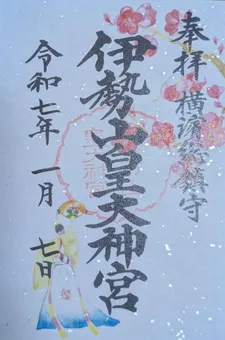 奉拝 横濱総鎮守
伊勢山皇大神宮
令和七年 一月 七日